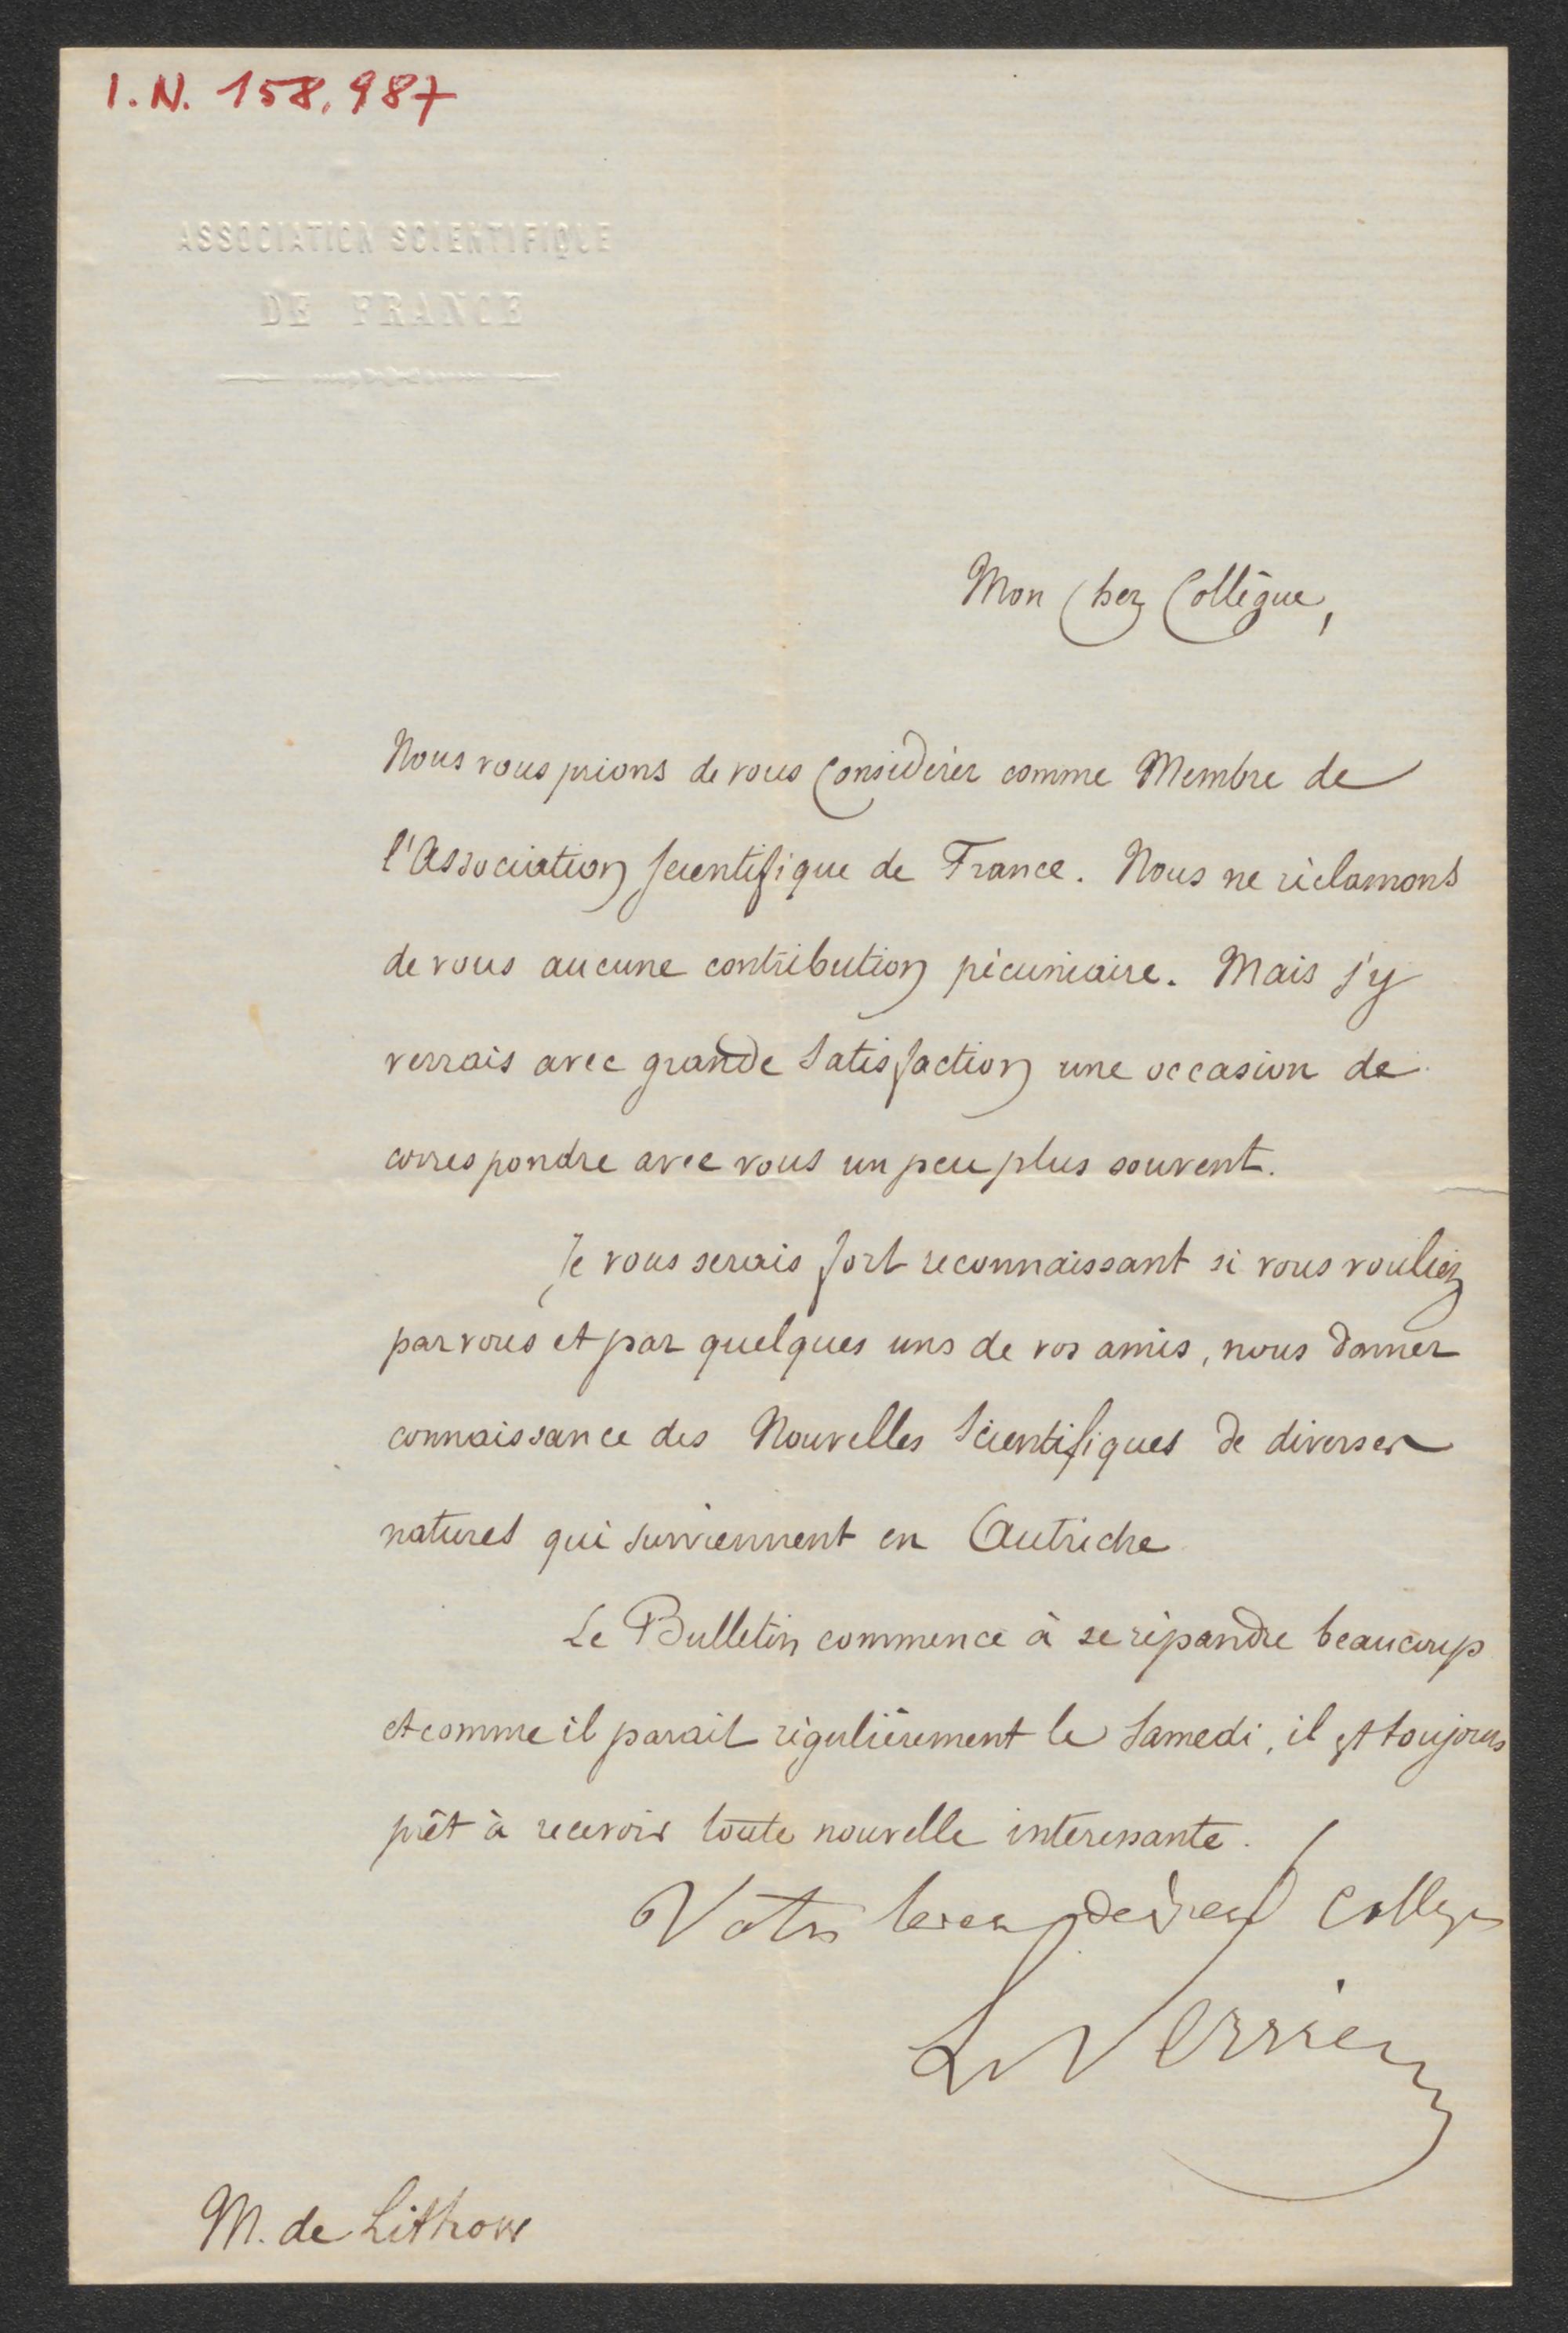 I.N. 158.987
ASSOCIATION SCIENTIFIQUE
DE FRANCE
Mon Cher Collègue,
Nous vous prions de vous Considérer comme Membre de
l'Association Scientifique de France. Nous ne réclamons
de vous aucune contribution pécuniaire. Mais j'y
verrais avec grande Satisfaction une occasion de
correspondre avec vous un peu plus souvent.
Je vous serais fort reconnaissant si vous vouliez
par vous et par quelques uns de vos amis, nous donner
connaissance des Nouvelles Scientifiques de diverses
natures qui surviennent en Autriche
Le Bulletin commence à se répandre beaucoup
et comme il parait régulièrement le Samedi, il est toujours
prêt à recevoir toute nouvelle intéressante.
Votre collègue
Le Verrier
M. de Litkow